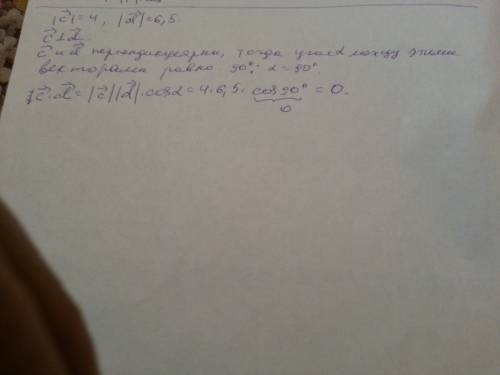 |c⃗|=4, |d⃗|=6,5.
c⃗⊥d⃗.
c⃗ и d⃗ перпендикулярны, тогда угол α между этими
векторами равно 90°: α=90°.
c⃗·d⃗=|c⃗||d⃗|·cosα=4·6,5·cos90°=0.
0